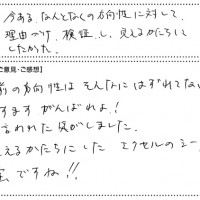 今ある、なんとなくの方向性に対して、
理由づけ、検証し、見えるかたちに
したかった。
ご意見・ご感想】
前の方向性は そんなにはずれてない
ますます がんばれよ!
言われた気がしました。
見えるかたちにした エクセルのシー
宝ですね!!